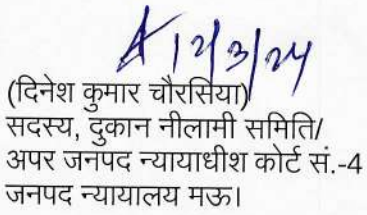 12/3/24
(दिनेश कुमार चौरसिया)
सदस्य, दुकान नीलामी समिति/
अपर जनपद न्यायाधीश कोर्ट सं.-4
जनपद न्यायालय मऊ।